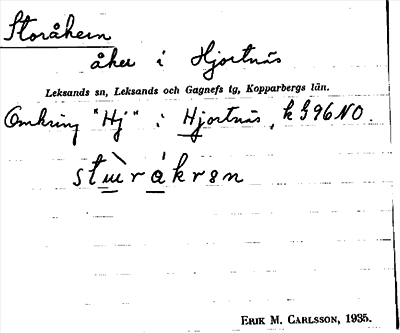 Storåkern
åker i Hjortnäs
Leksands sn, Leksands och Gagnefs tg, Kopparbergs län.
Omkring "Hj" i Hjortnäs, k G96NO.
Erik M. Carlsson, 1935.